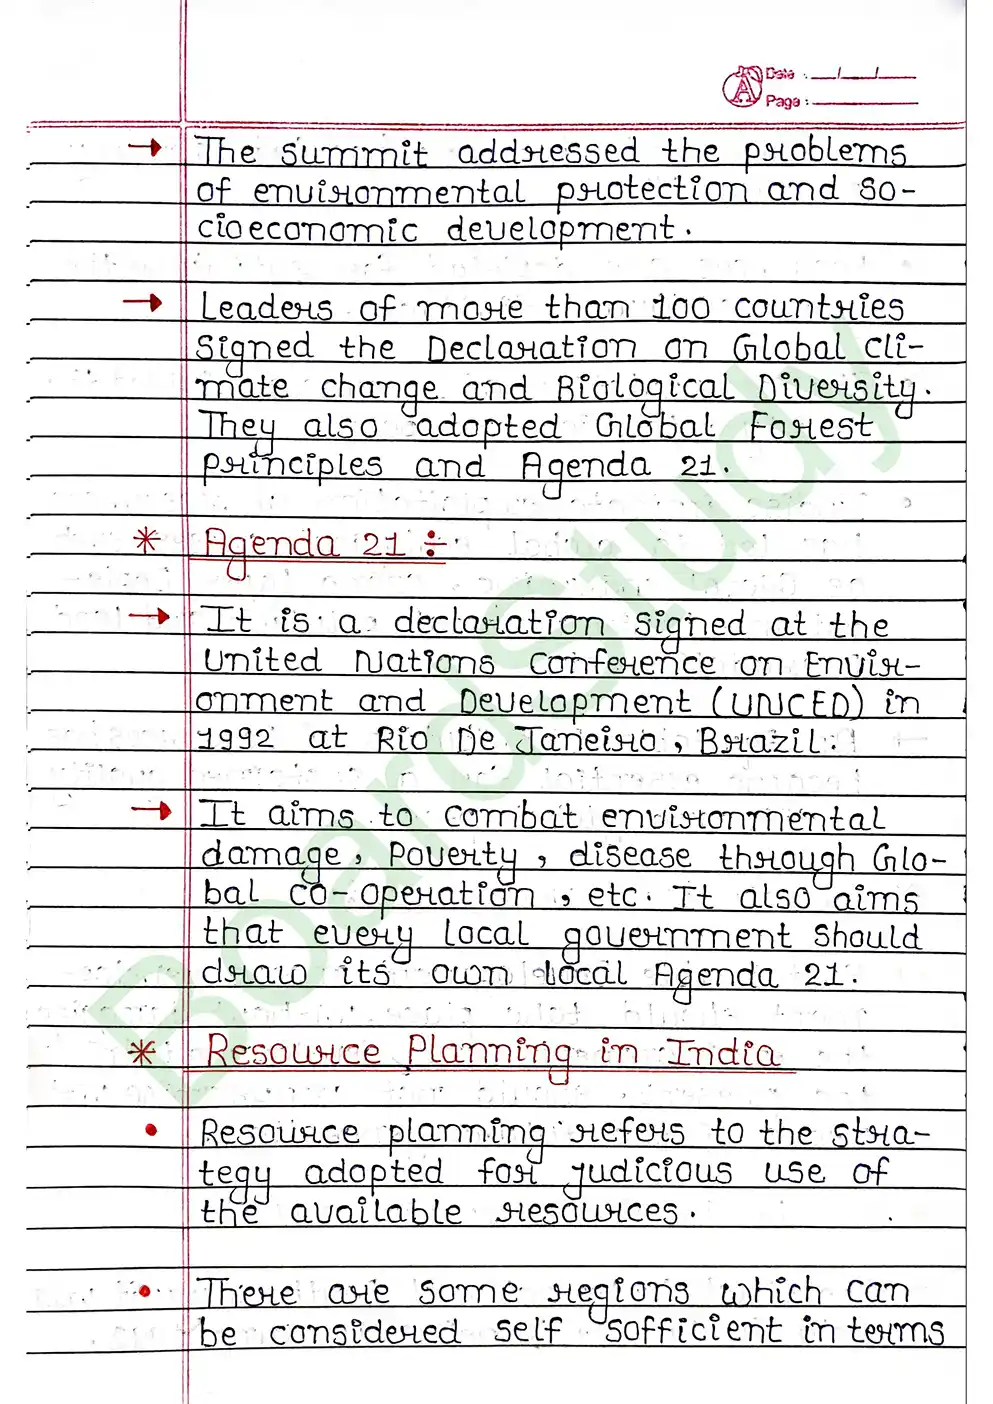 Date : __/__/__
Page : ________
→ The summit addressed the problems
of environmental protection and so-
cioeconomic development.
→ Leaders of more than 100 countries
signed the Declaration on Global cli-
mate change and Biological Diversity.
They also adopted Global Forest
principles and Agenda 21.
* Agenda 21 ÷
→ It is a declaration signed at the
United Nations Conference on Envir-
onment and Development (UNCED) in
1992 at Rio De Janeiro, Brazil.
→ It aims to combat environmental
damage, Poverty, disease through Glo-
bal co-operation, etc. It also aims
that every local government should
draw its own local Agenda 21.
* Resource Planning in India
• Resource planning refers to the stra-
tegy adopted for judicious use of
the available resources.
• There are some regions which can
be considered self sofficient in terms
BoardStudy